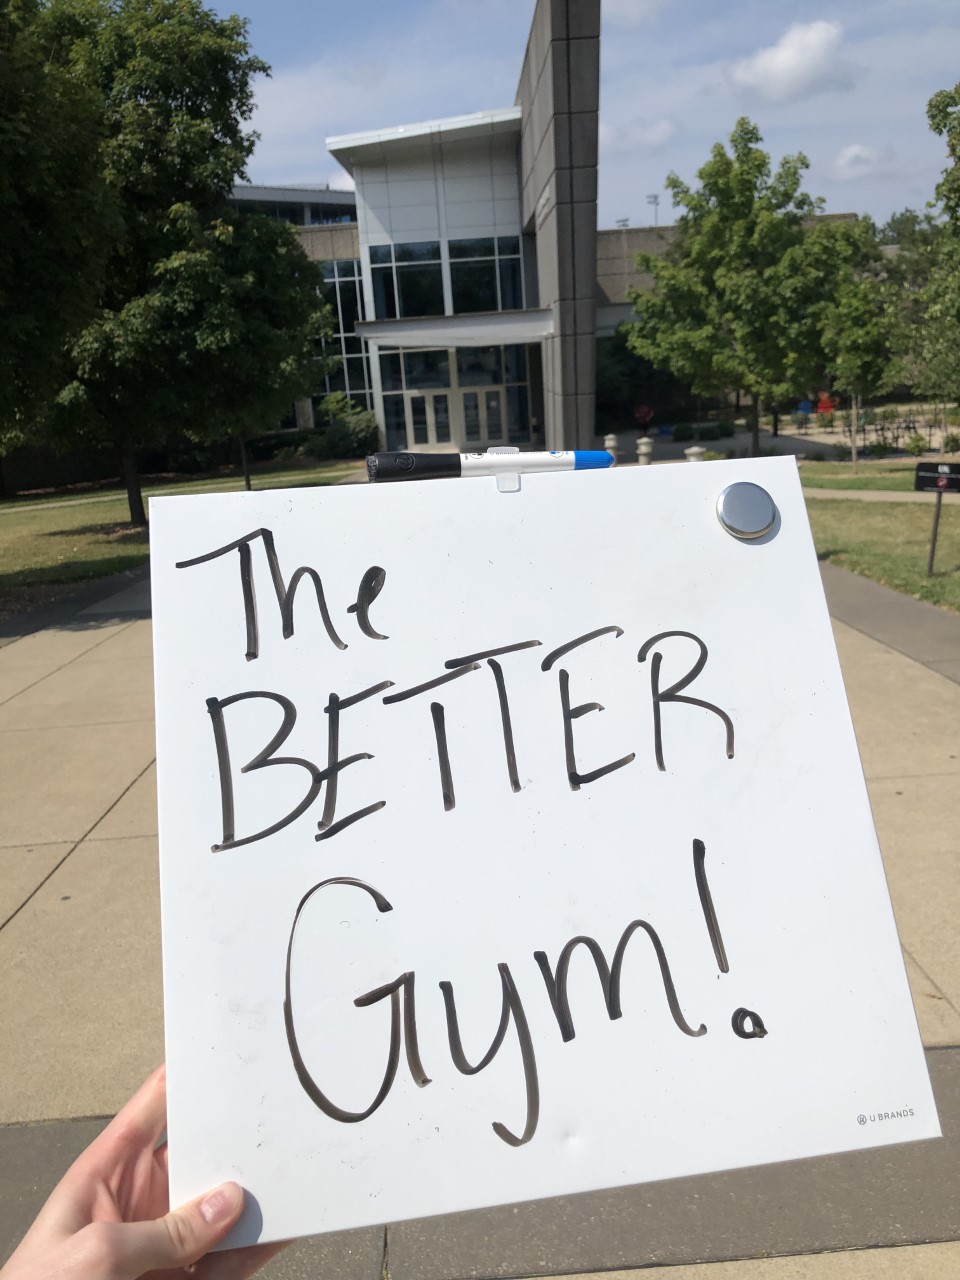 The
BETTER
Gym!
U BRANDS